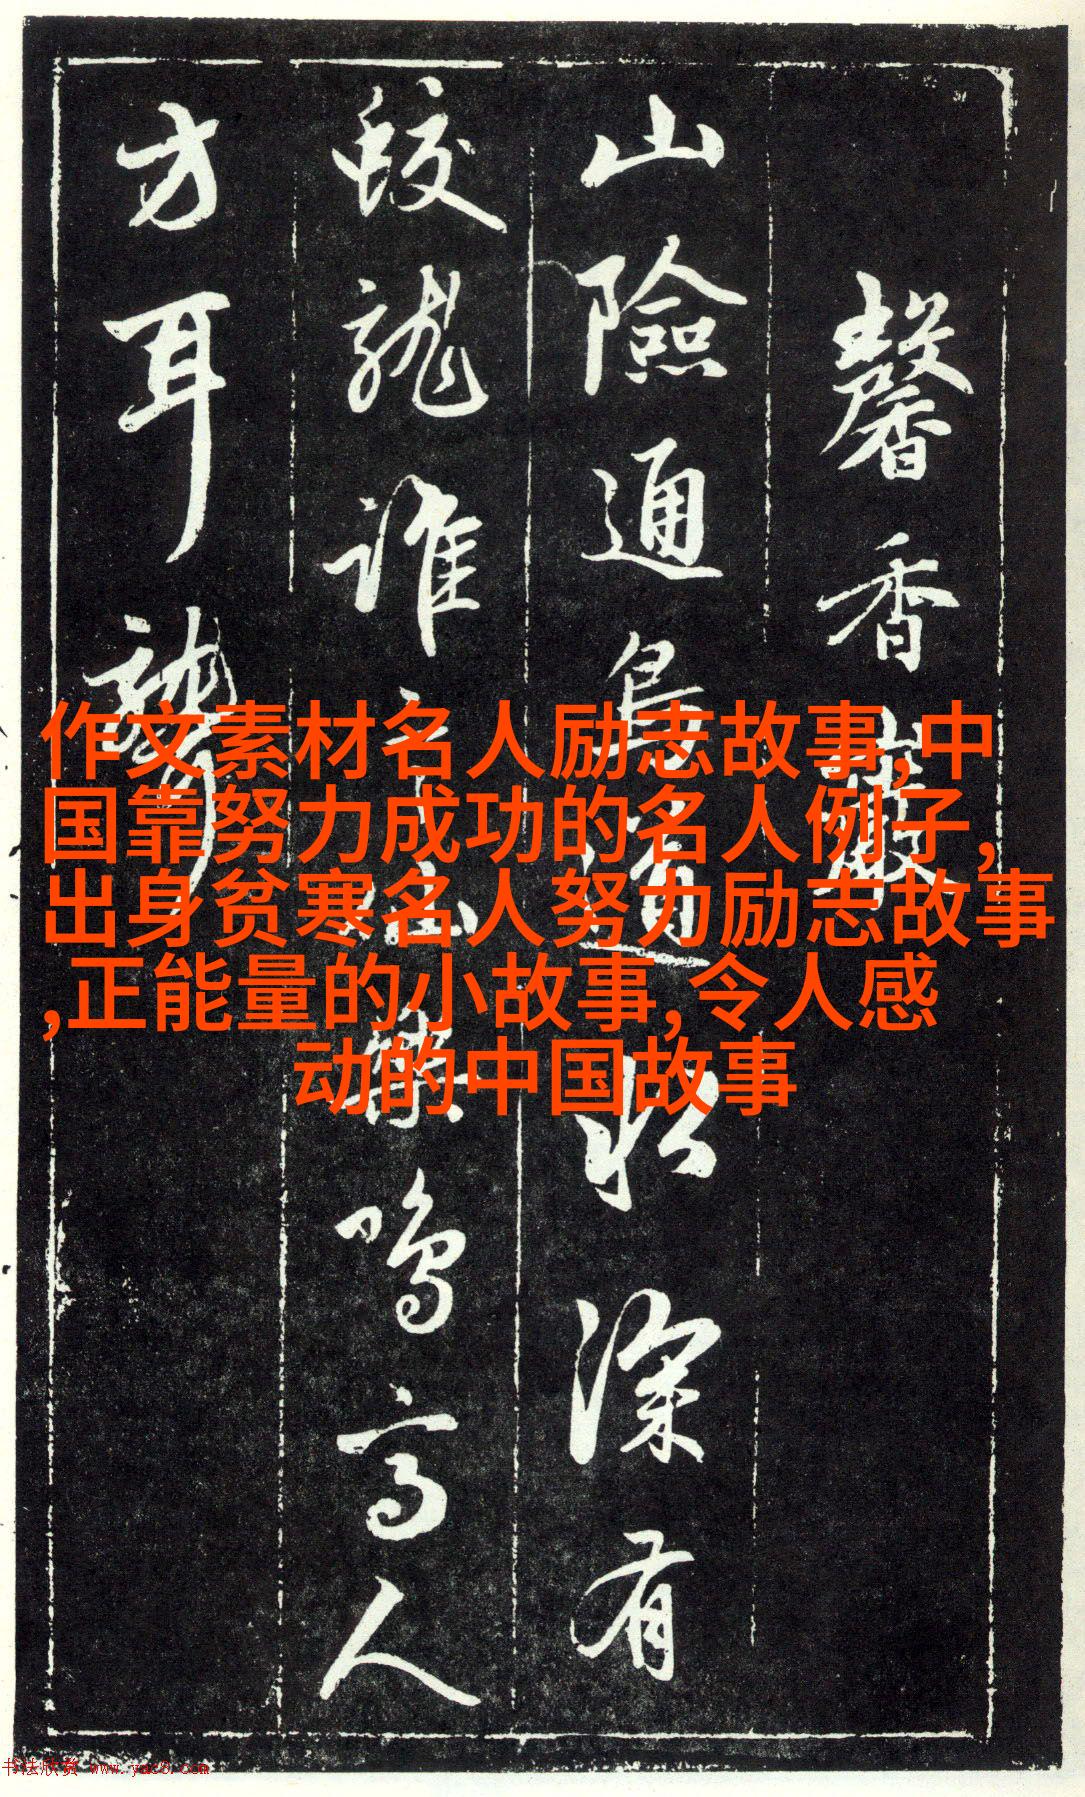 馨香
山險通鳥道水深有
蛟龍誰鳴高人
方耳聾
作文素材名人励志故事,中
国靠努力成功的名人例子,
出身贫寒名人努力励志故事
,正能量的小故事,令人感
动的中国故事
书法欣赏 www.yac8.com